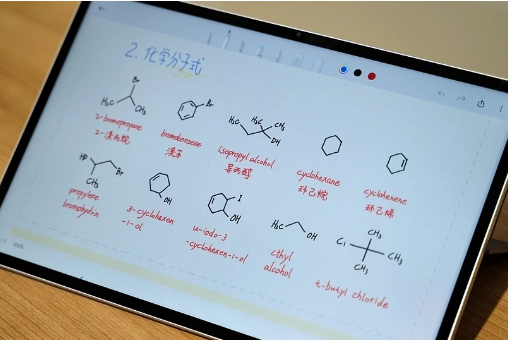 2. 化学分子式
Br
H₃C CH₃
2-bromopropane
2-溴丙烷
Br
bromobenzene
溴苯
H₃C H₃C CH₃
OH
isopropyl alcohol
异丙醇
cyclohexane
环己烷
cyclohexene
环己烯
HO Br
CH₃
propylene
bromohydrin
OH
3-cyclohexen
-1-ol
I
OH
-cyclohexen-1-ol
H₃C OH
ethyl
alcohol
CH₃
Cl CH₃
CH₃
t-butyl chloride
100%